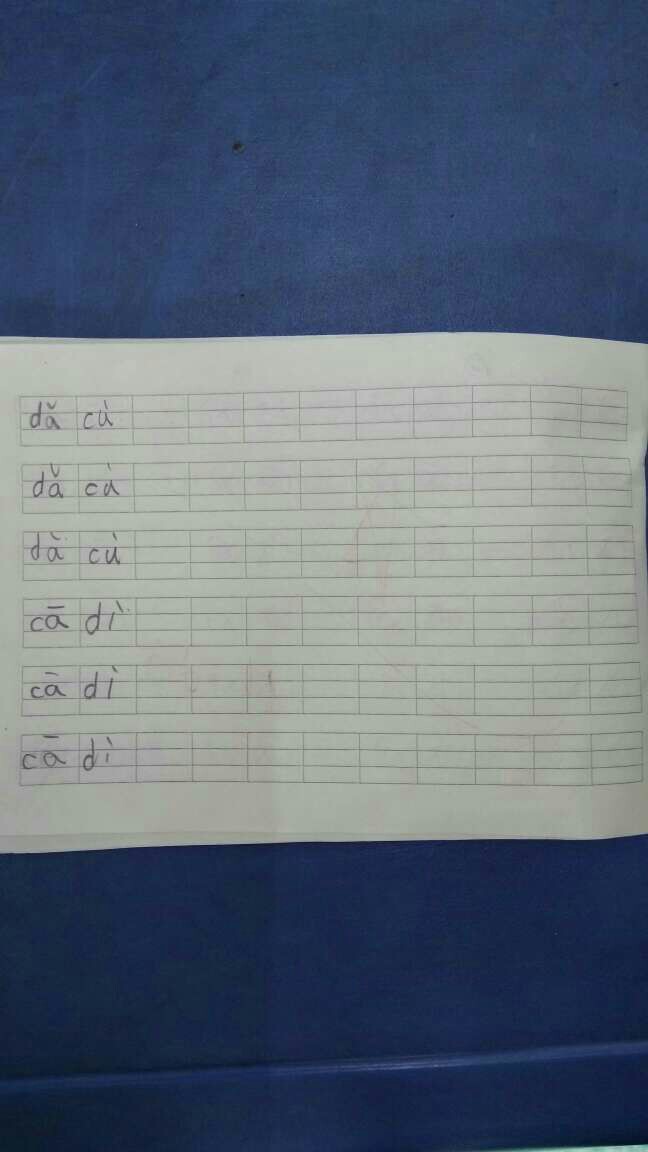 dǎ cù
dǎ cù
dǎ cù
cā dì
cā dì
cā dì